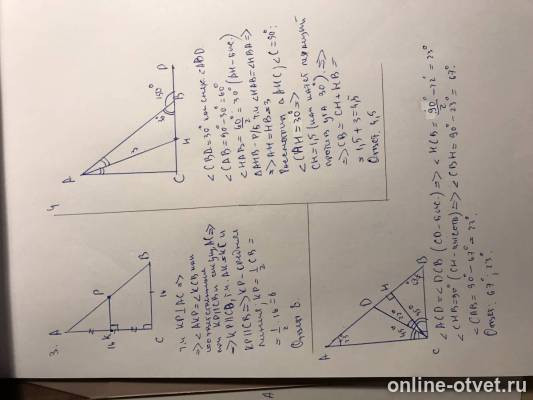 3.
A
P
K
16
C
16
B
т.к. KP⊥AC =>
=> ∠AKP=∠KCB как
соответственные
при KP||CB и секущ. AC =>
=> KP||CB, т.к. AK=KC и
KP||CB => KP - средняя
линия; KP = 1/2 CB =
= 1/2 · 16 = 8
Ответ 8.
4
A
3
30°
150°
C
H
B
D
∠CBA=30° как смеж. ∠ABD
∠CAB = 90°-30°=60°
∠HAB = 60°/2 = 30° (AH - бис)
△AHB - р/б, т.к. ∠HAB=∠HBA =>
=> AH=HB=3
Рассмотрим △AHC, ∠C=90°:
∠CAH=30° =>
CH=1,5 (как катет лежащий
против угла 30°) =>
=> CB = CH + HB =
= 1,5 + 3 = 4,5
Ответ: 4,5
A
23
D
H
67
B
22°
45
C
∠ACD = ∠DCB (CD - бис.) => ∠HCB = 90°/2 - 22° = 23°
∠CHB = 90° (CH - высота) => ∠CBH = 90° - 23 = 67°
∠CAB = 90 - 67° = 23°.
Ответ: 67°, 23°.
A
online-otvet.ru